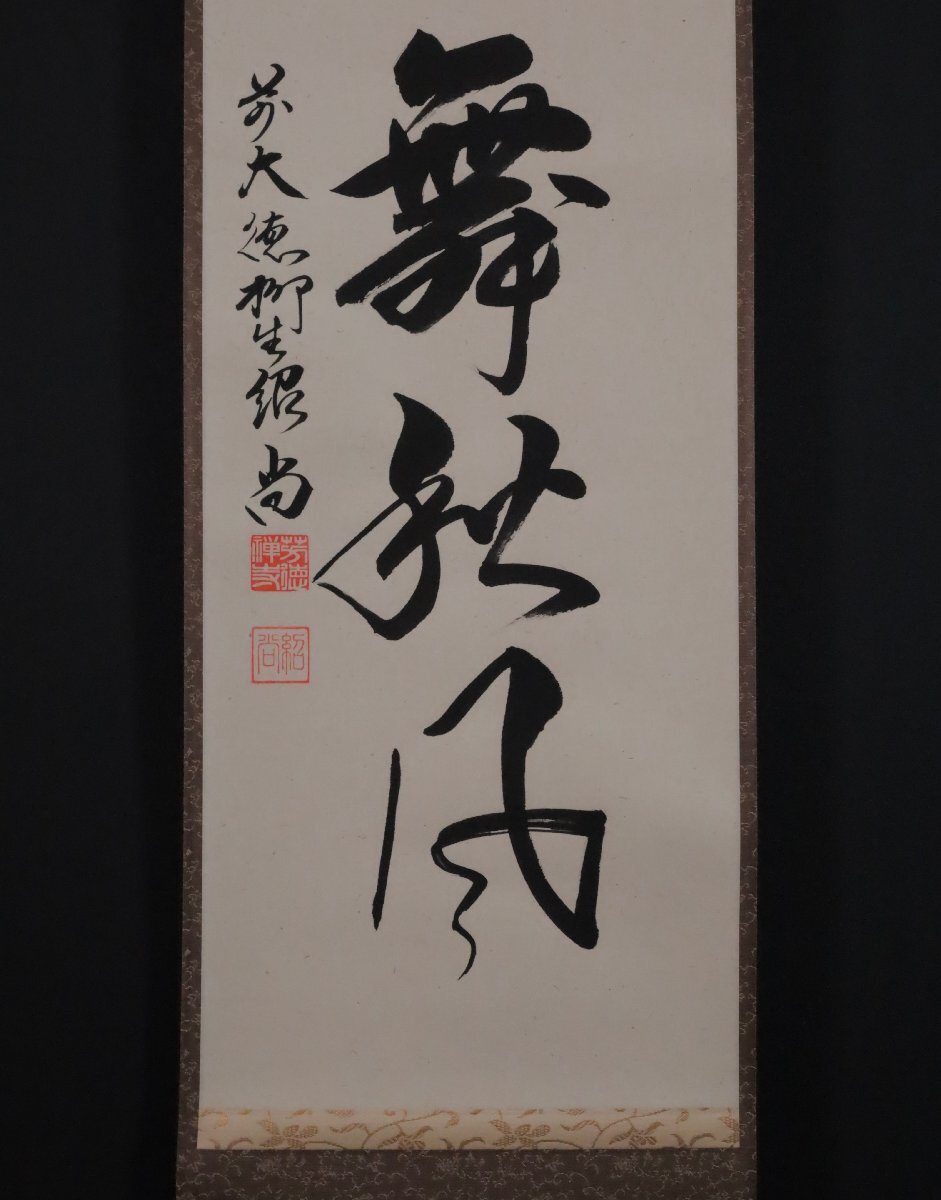 舞秋風
前大徳柳生紹尚
芳徳禅寺
紹尚